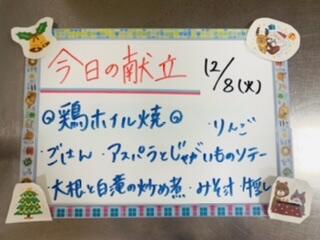 今日の献立 12/8(火)
◎鶏ホイル焼◎ ・りんご
・ごはん ・アスパラとじゃがいものソテー
・大根と白滝の炒め煮 ・みそ汁